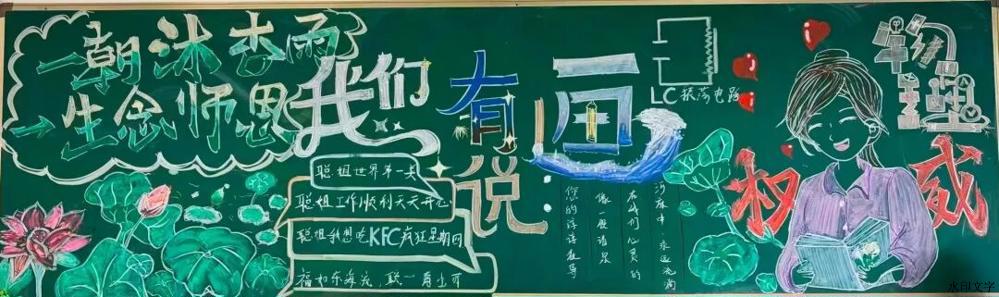 一朝沐杏雨
一生念师恩
我们有画说
LC振荡电路
聪姐世界第一美
聪姐工作顺利天天开心
聪姐我想吃KFC疯狂星期四
福如东海
您的谆谆教导
像一股清泉
在我们心灵的
河床中，永远流淌
权威
水印文字